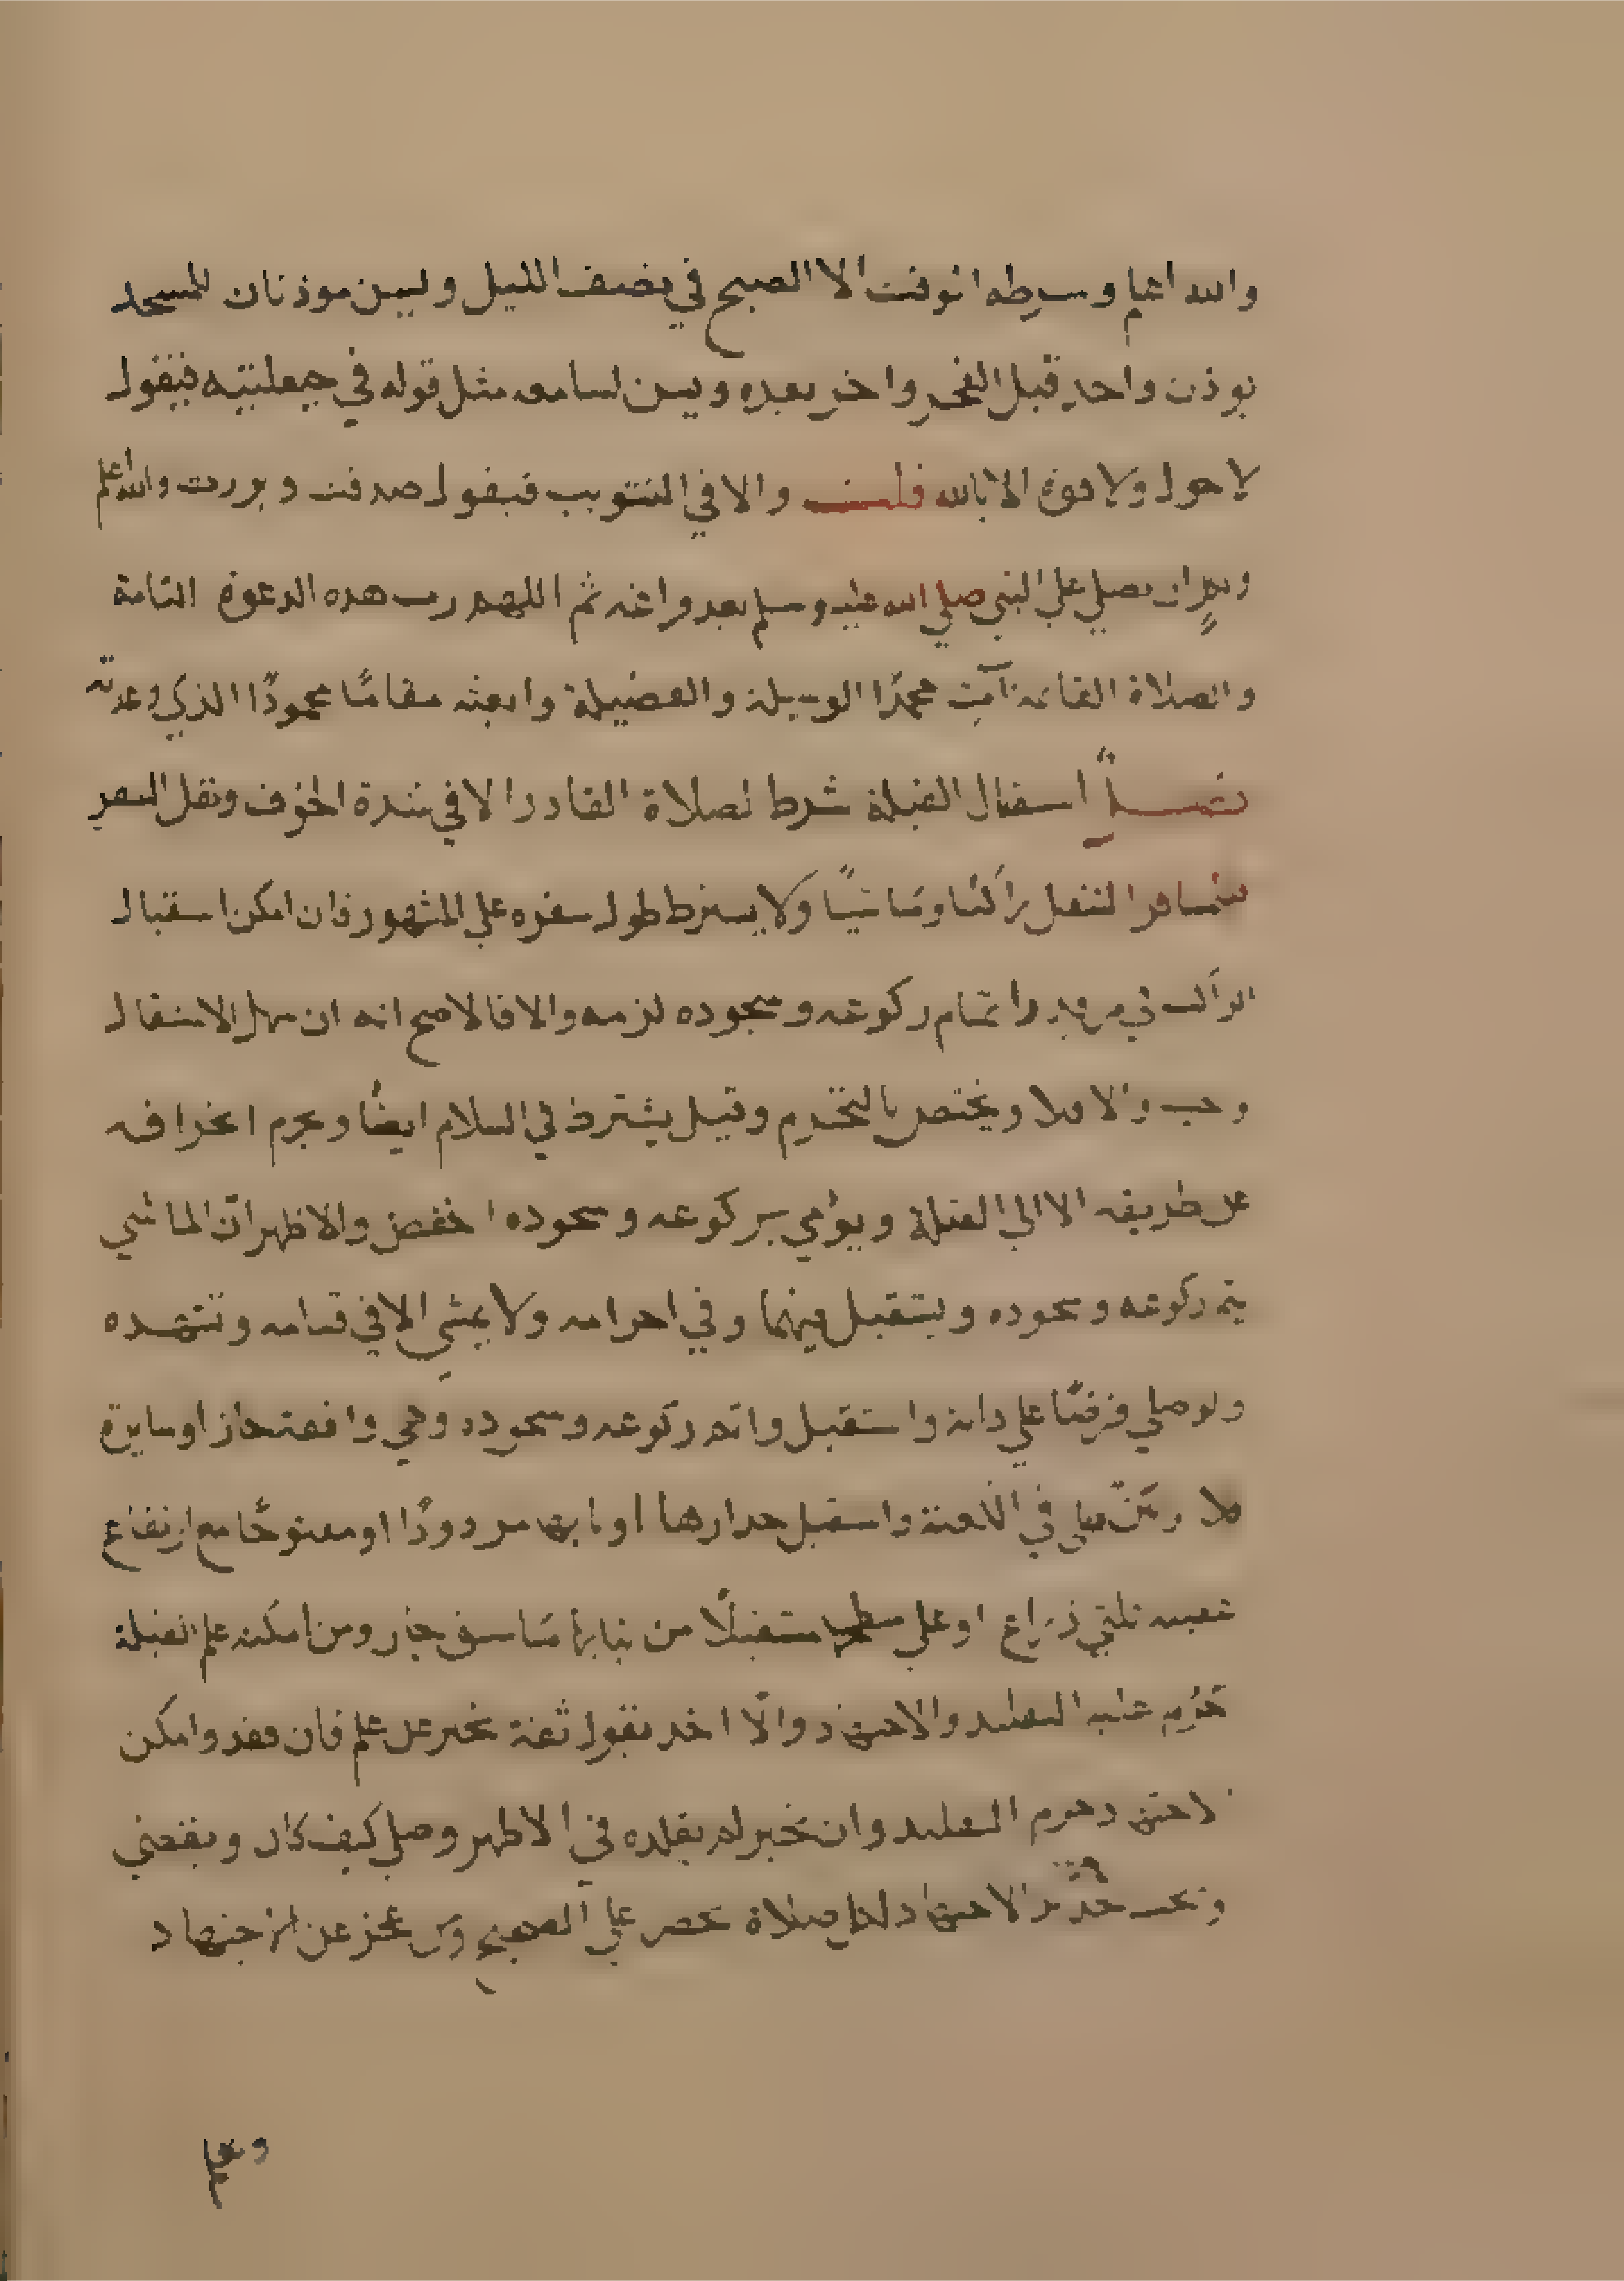 والله اعلم وسرطه الوقت الا الصبح في نصف الليل ويسن موذنان للمسجد
يوذن واحد قبل الفجر واخر بعده ويسن لسامعه مثل قوله في حيعلتيه فيقول
لا حول ولا قوة الا بالله قلت والا في التثويب فيقول صدقت وبررت والله اعلم
ولكل ان يصلي علي النبي صلي الله عليه وسلم بعد فراغه ثم اللهم رب هذه الدعوة التامة
والصلاة القائمة آت محمدًا الوسيلة والفضيلة وابعثه مقامًا محمودًا الذي وعدته
فصل استقبال القبلة شرط لصلاة القادر الا في شدة الخوف ونفل السفر
فللمسافر التنفل راكبًا وماشيًا ولا يشترط طول سفره علي المشهور فان امكن استقبال
الراكب في مرقد واتمام ركوعه وسجوده لزمه والا فالاصح انه ان سهل الاستقبال
وجب والا فلا ويختص بالتحرم وقيل يشترط في السلام ايضًا ويحرم انحرافه
عن طريقه الا الي القبلة ويومي بركوعه وسجوده اخفض والاظهر ان الماشي
يتم ركوعه وسجوده ويستقبل فيهما وفي احرامه ولا يمشي الا في قيامه وتشهده
ولو صلي فرضًا علي دابة واستقبل واتم ركوعه وسجوده وهي واقفة جاز او سايرة
فلا ومن صلي في الكعبة واستقبل جدارها او بابها مردودًا او مفتوحًا مع ارتفاع
عتبته ثلثي ذراع او علي سطحها مستقبلًا من بنايها ما سبق جاز ومن امكنه علم القبلة
حرم عليه التقليد والاجتهاد والّا اخذ بقول ثقة يخبر عن علم فان فقد وامكن
الاجتهاد حرم التقليد وان تحير لم يقلده في الاظهر وصلي كيف كان ويقضي
ويجب تجديد الاجتهاد لكل صلاة تحضر علي الصحيح ومن عجز عن الاجتهاد
وتعلم